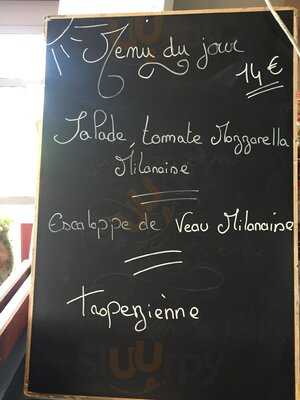 Menu du jour
14€
Salade, tomate Mozzarella
Milanaise
Escaloppe de Veau Milanaise
Tropezienne